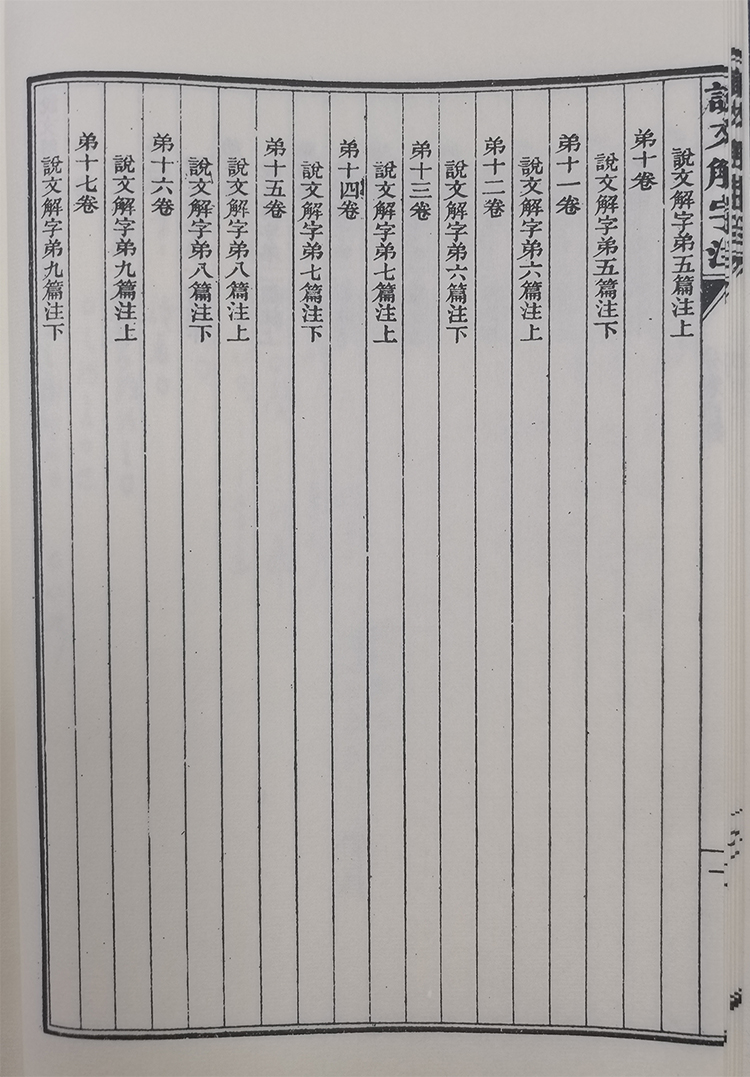 說文解字注
說文解字弟五篇注上
弟十卷
說文解字弟五篇注下
弟十一卷
說文解字弟六篇注上
弟十二卷
說文解字弟六篇注下
弟十三卷
說文解字弟七篇注上
弟十四卷
說文解字弟七篇注下
弟十五卷
說文解字弟八篇注上
說文解字弟八篇注下
弟十六卷
說文解字弟九篇注上
弟十七卷
說文解字弟九篇注下